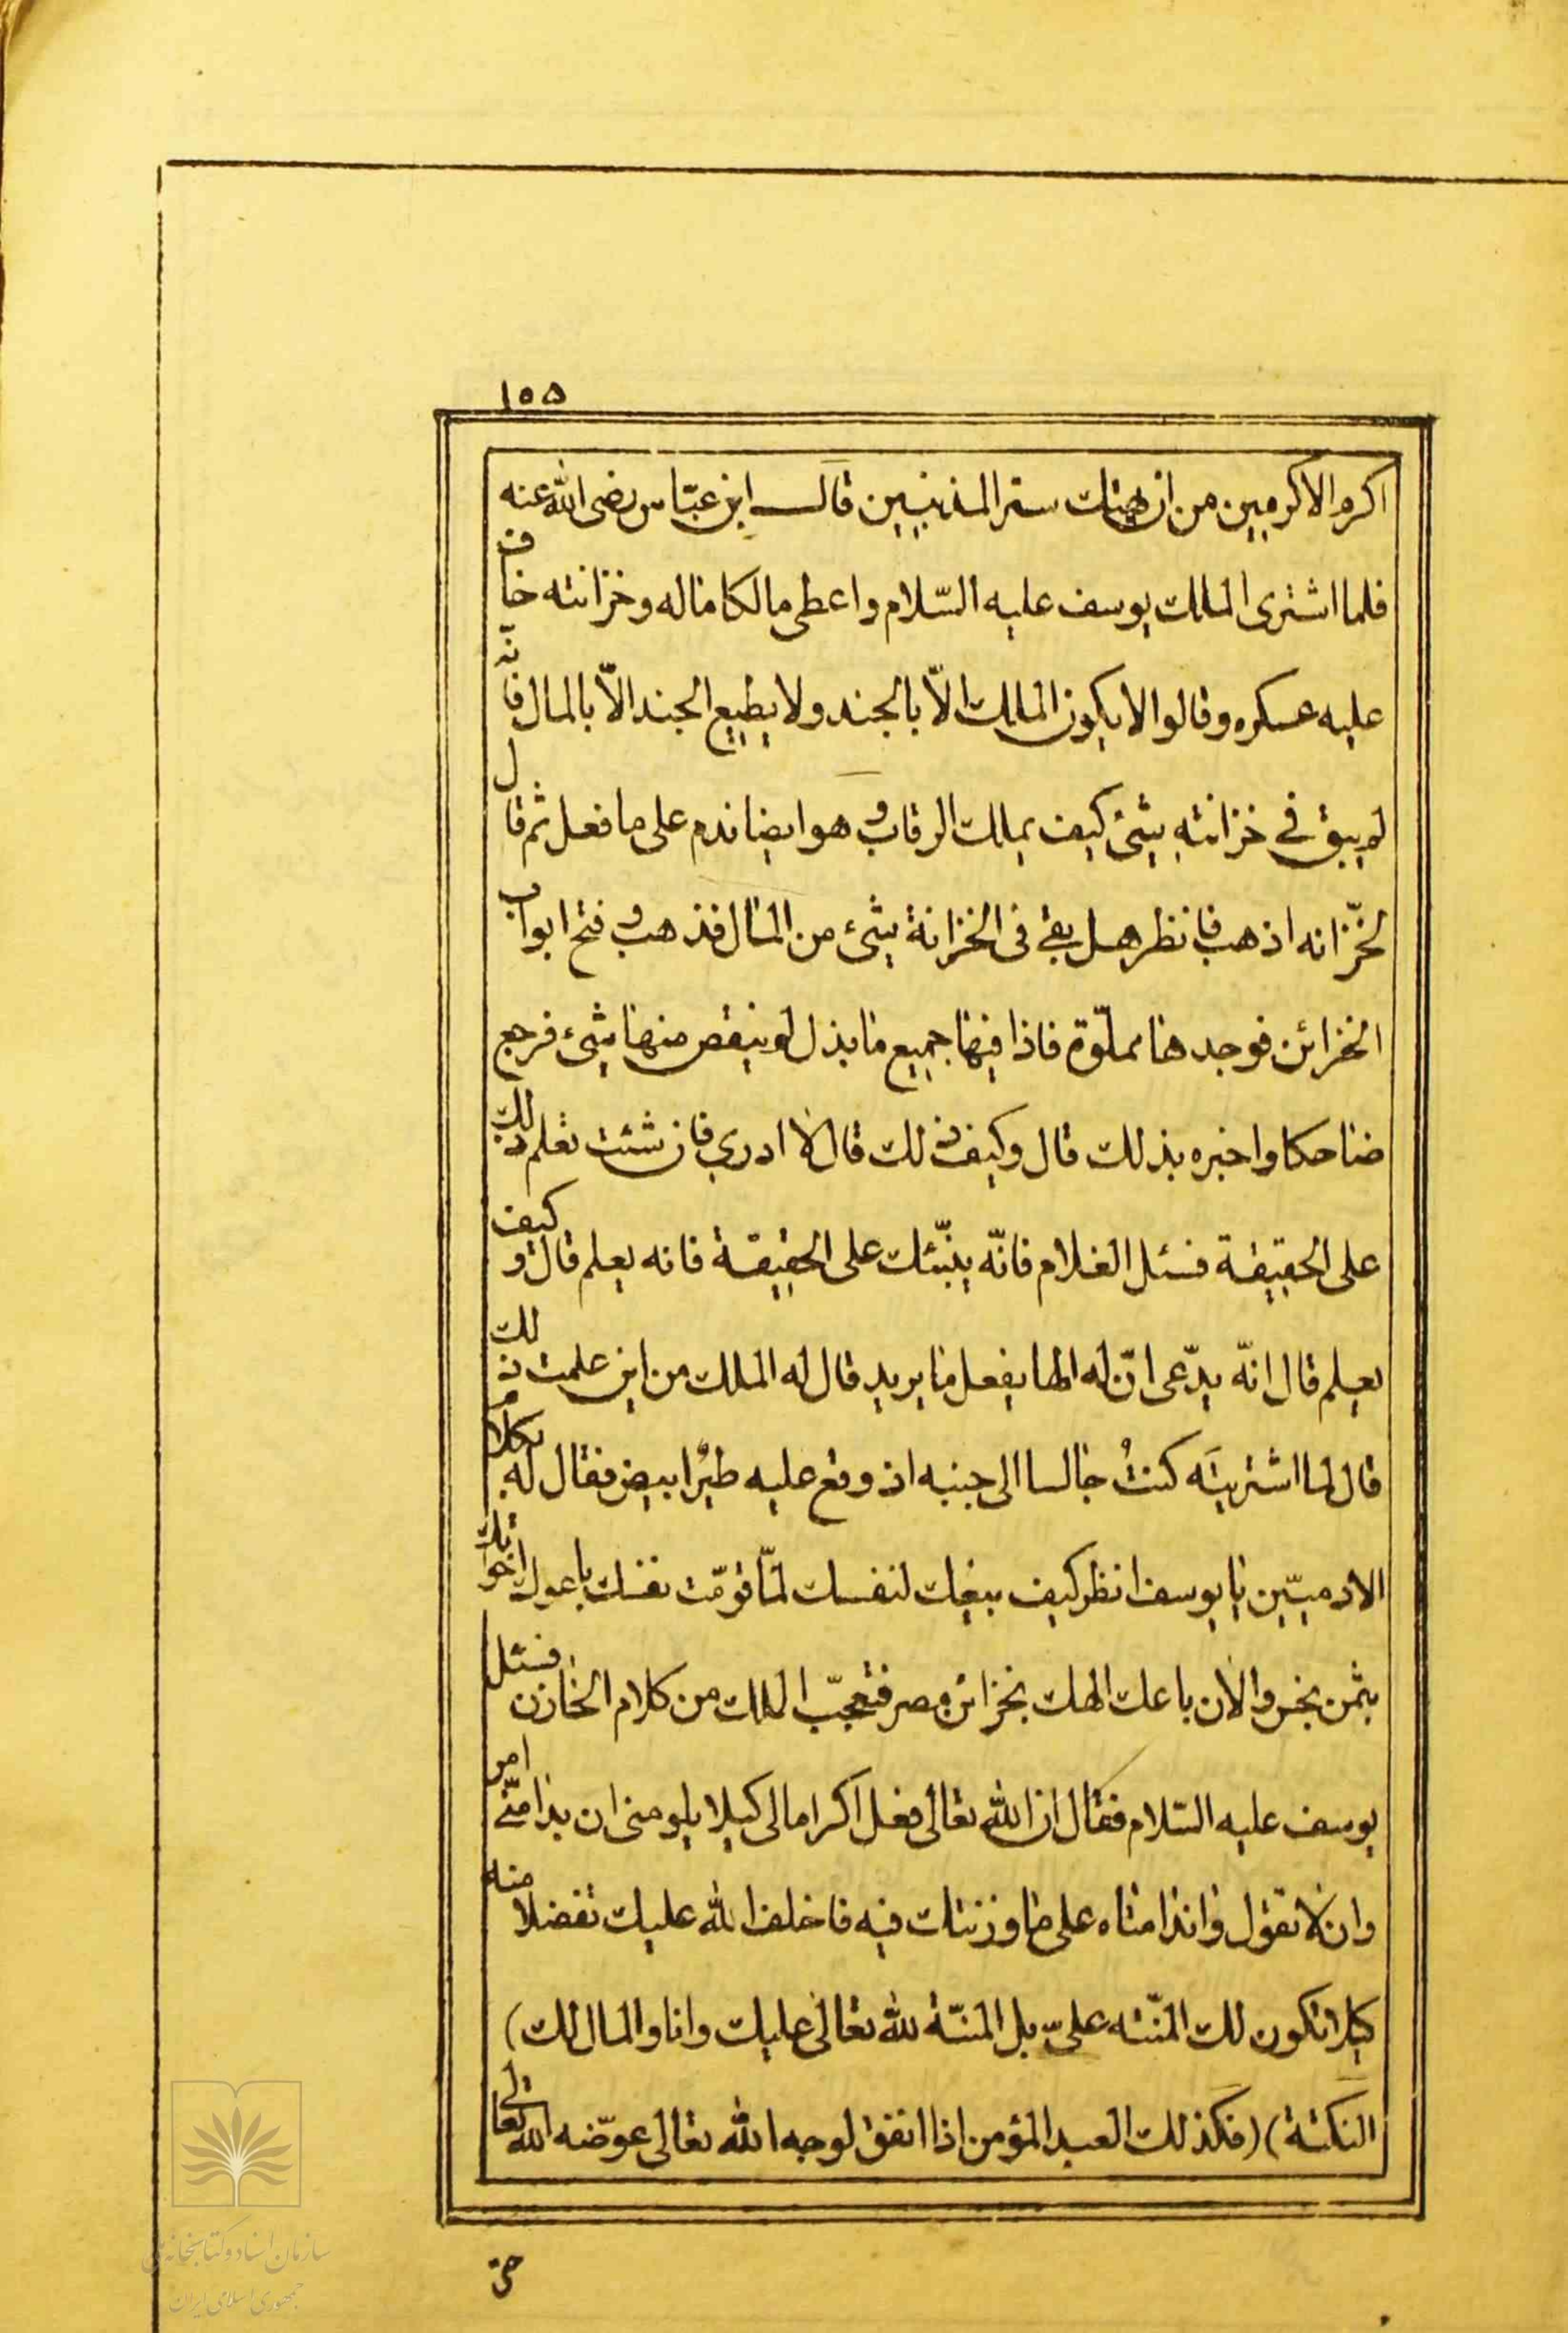 ١٥٥
اكرم الاكرمين من ان يهتك ستر المذنبين قال ابن عبّاس رضى الله عنه
فلما اشترى الملك يوسف عليه السّلام واعطى مالكا ماله وخزانته خاف
عليه عسكره وقالوا لا يكون الملك الاّ بالجند ولا يطيع الجند الاّ بالمال فانّه
لم يبق في خزانته شئ كيف يملك الرقاب وهو ايضا ندم على ما فعل ثم قال
لخزّانه اذهب فانظر هل بقى فى الخزانة شئ من المال فذهب وفتح ابواب
الخزائن فوجدها مملوّة فاذا فيها جميع ما بذل لم ينقص منها شئ فرجع
ضاحكا واخبره بذلك قال وكيف ذلك قال لا ادري فان شئت تعلم ذلك
على الحقيقة فسئل الغلام فانّه ينبّئك على الحقيقة فانه يعلم قال وكيف
يعلم قال انّه يدّعى انّ له الها يفعل ما يريد قال له الملك من اين علمت ذلك
قال لما اشتريتَه كنتُ جالسا الى جنبه اذ وقع عليه طيرٌ ابيض فقال له بكلام
الادميّين يا يوسف انظر كيف بيعك لنفسك لمّا قوّمت نفسك باعوك اخوانك
بثمن بخس والان باعك الهك بخزائن مصر فتعجّب الملك من كلام الخازن فسئل
يوسف عليه السّلام فقال ان الله تعالى فعل اكراما لى كيلا يلومنى ان بدا منّى امر
وان لا تقول واندامتاه على ما وزنتك فيه فاخلف الله عليك تفضلا منه
كيلا تكون لك المنّته علىّ بل المنّة لله تعالى عليك وانا والمال لك)
النكتة) (فكذلك العبد المؤمن اذا انفق لوجه الله تعالى عوّضه الله تعالى
سازمان اسناد و کتابخانه ملی
جمهوری اسلامی ایران